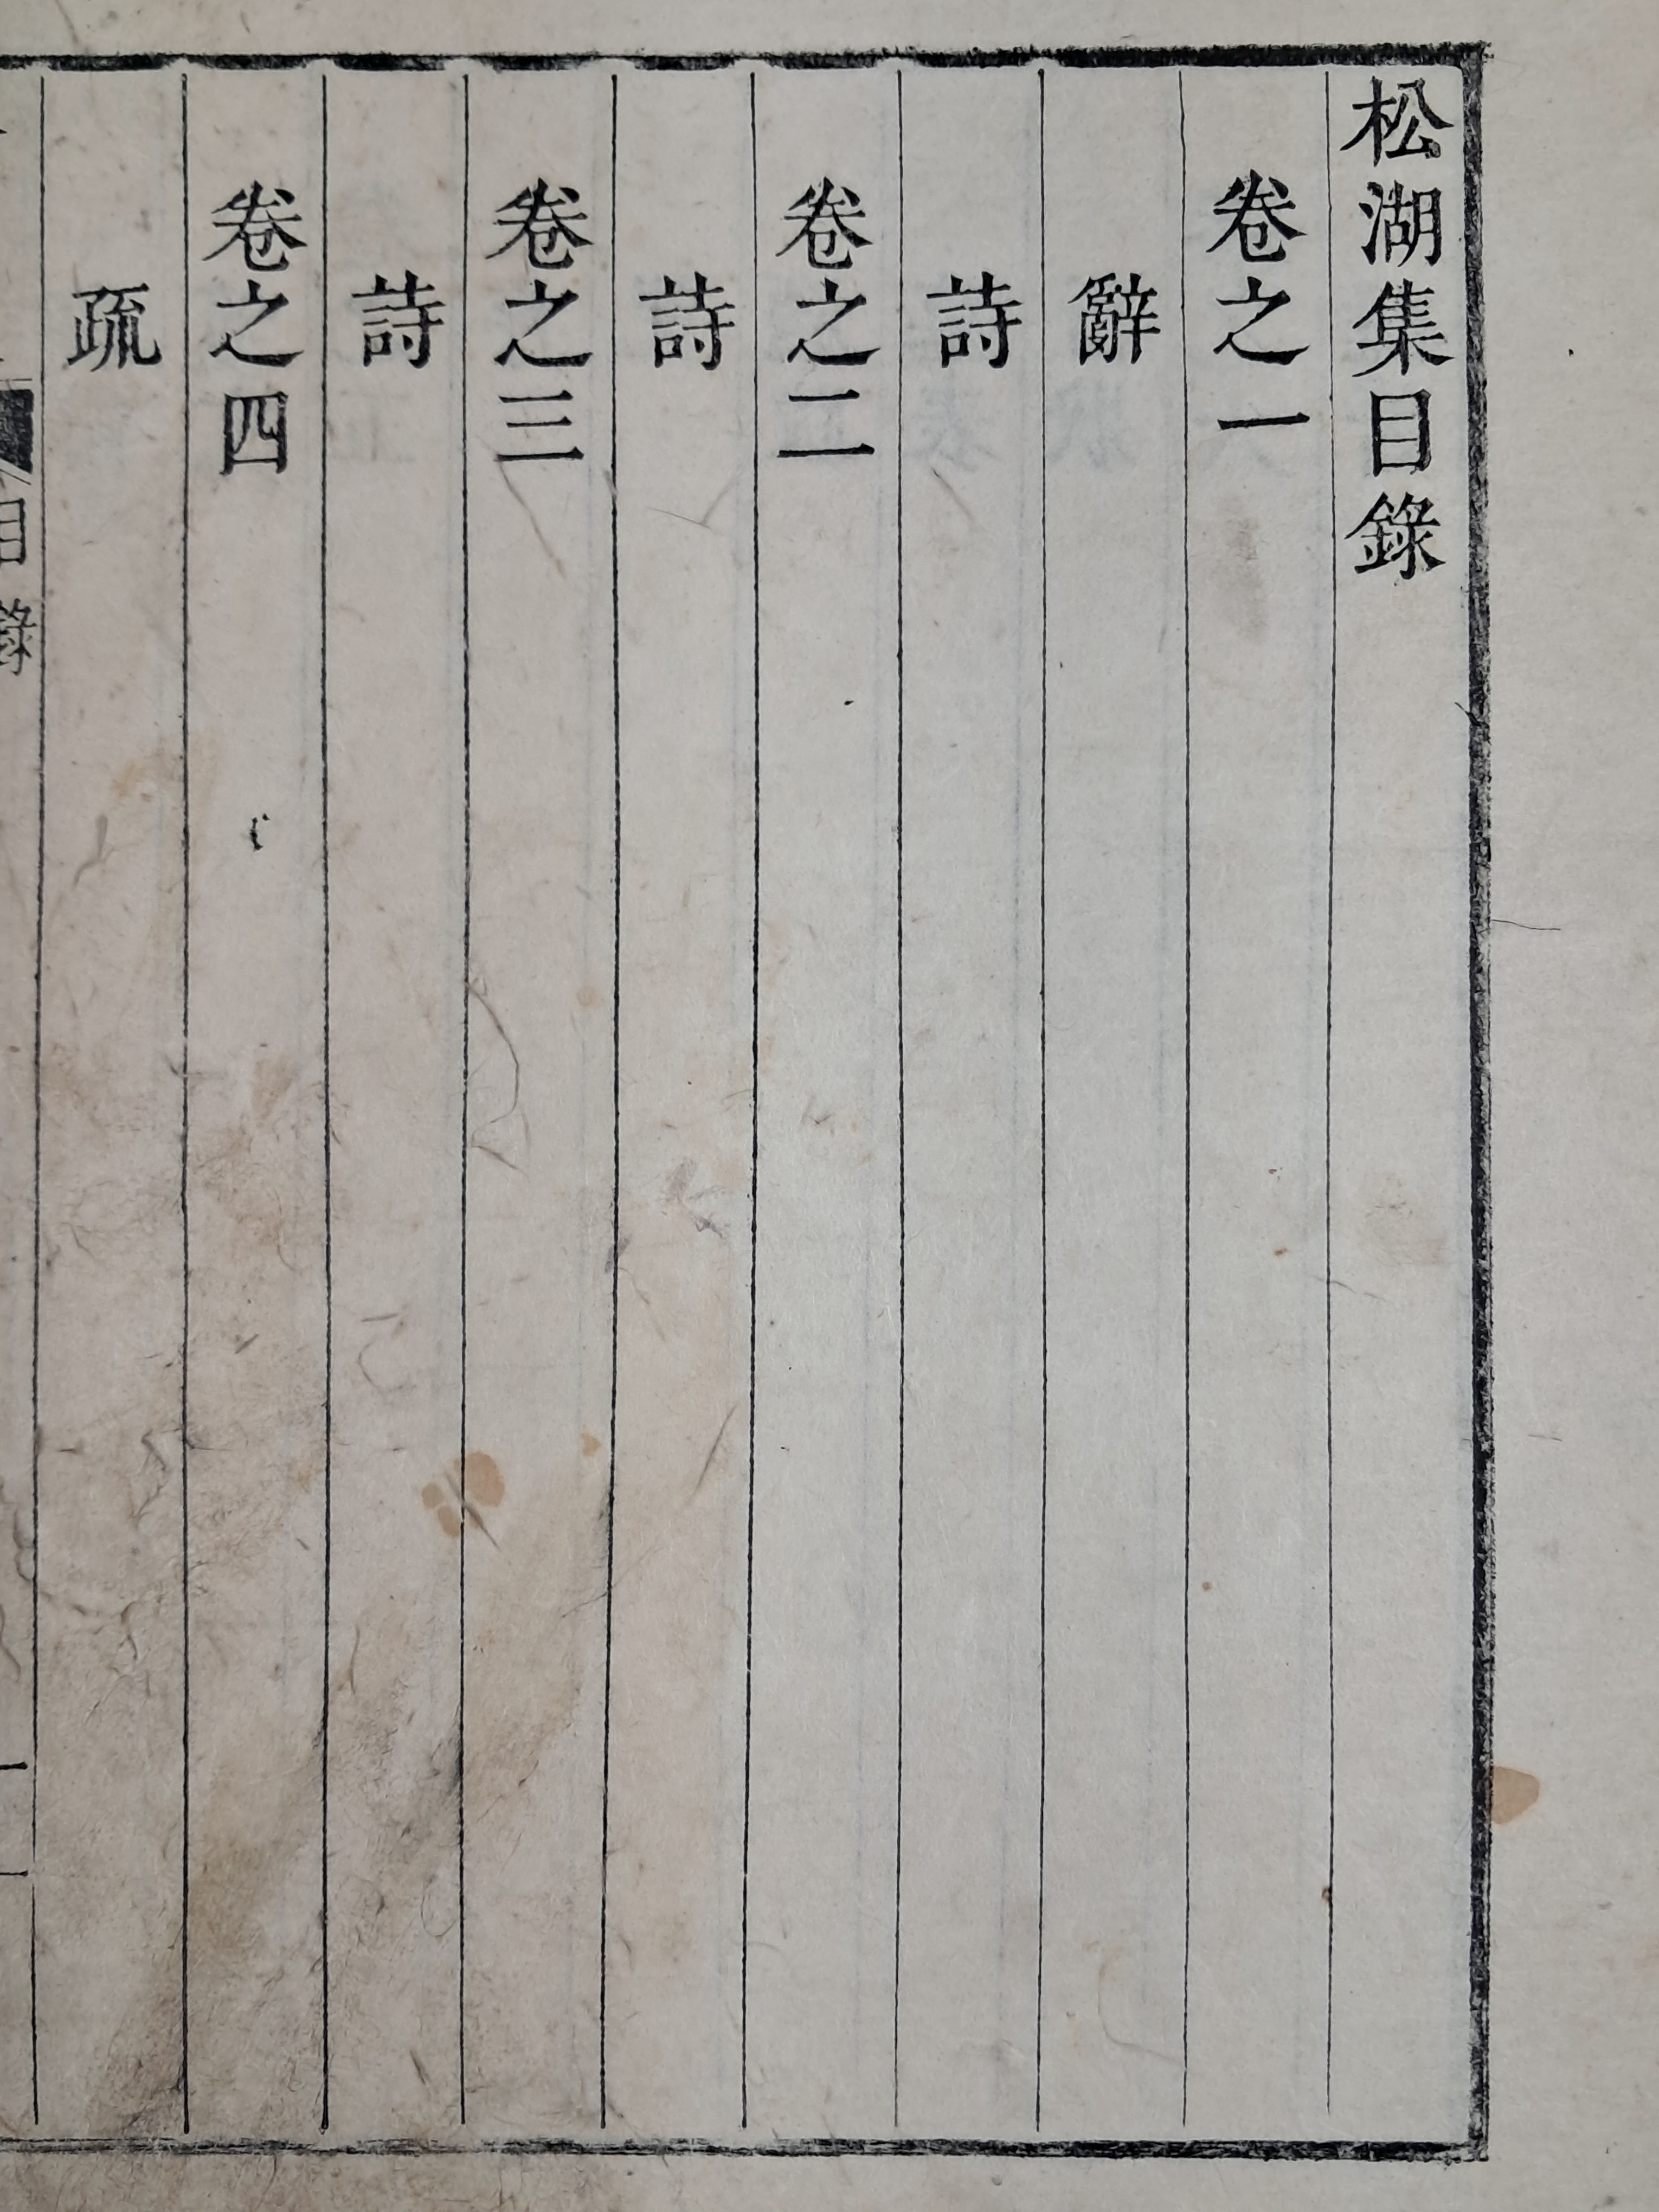 松湖集目錄
卷之一
辭
詩
卷之二
詩
卷之三
詩
卷之四
疏
目錄